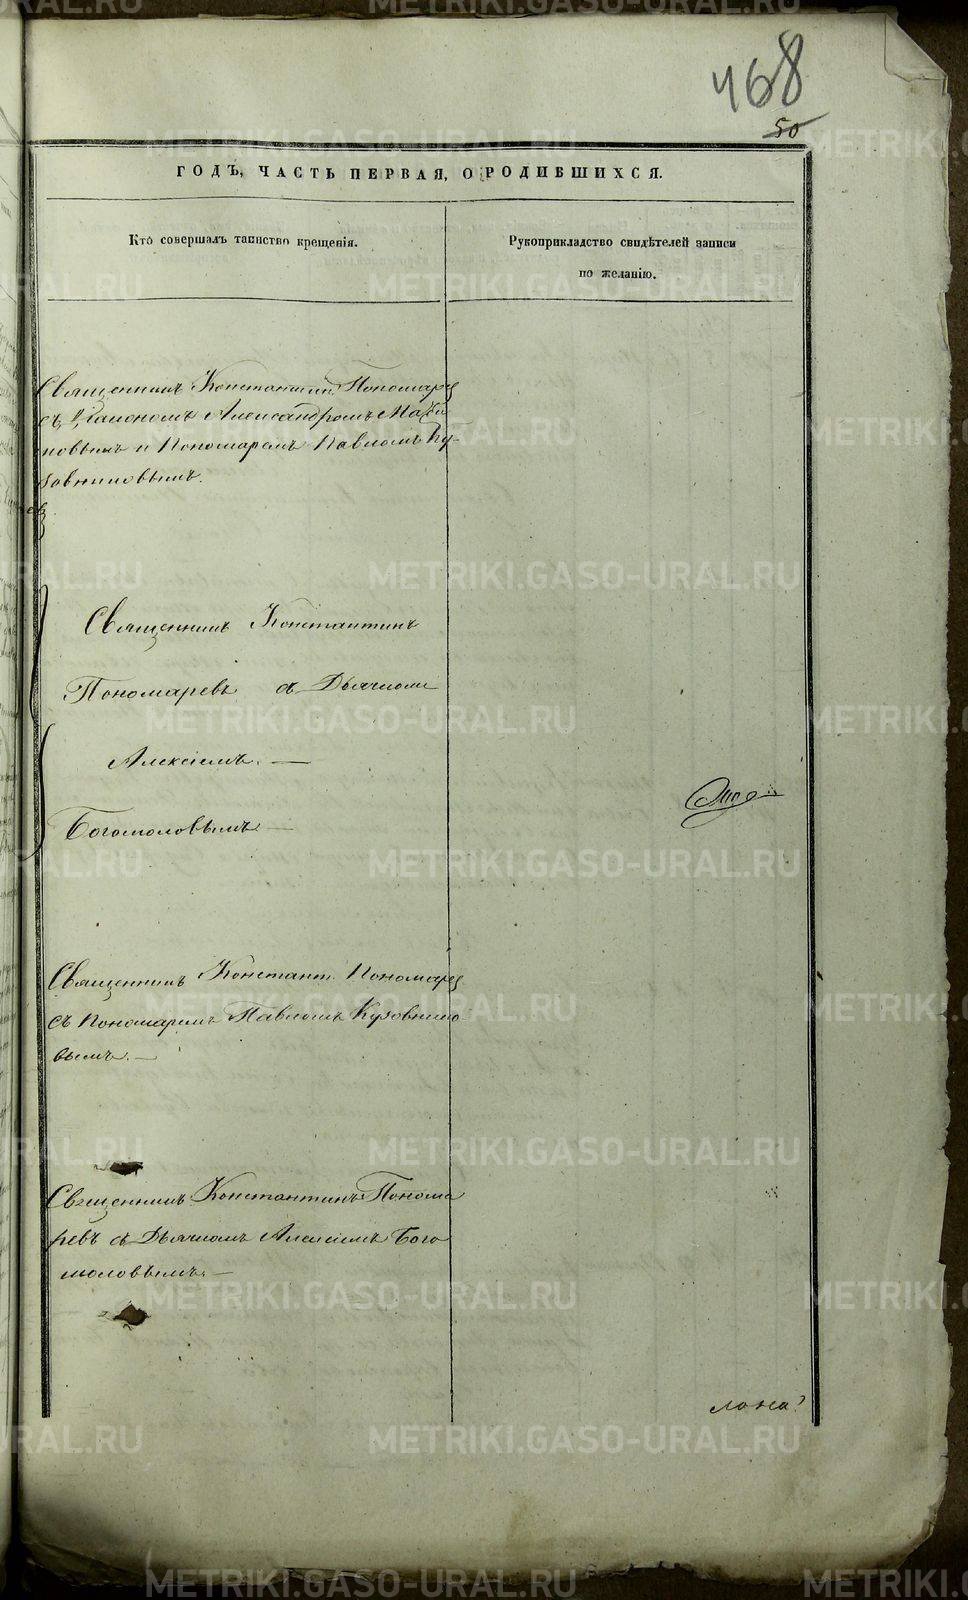 468
50
ГОДЪ, ЧАСТЬ ПЕРВАЯ, О РОДИВШИХСЯ.
Кто совершалъ таинство крещенія.
Рукоприкладство свидѣтелей записи
по желанію.
Священникъ Константинъ Пономарев
съ Діакономъ Александромъ
новымъ и Пономаремъ Павломъ Ку-
зовниковымъ.
Священникъ Константинъ
Пономаревъ съ Дьячкомъ
Алексіемъ. —
Богомоловымъ —
Священникъ Констант. Пономарев
съ Пономаремъ Павломъ Кузовнико
вымъ. —
Священникъ Константинъ Понома
ревъ съ Дьячкомъ Алексіемъ Бого
моловымъ. —
METRIKI.GASO-URAL.RU